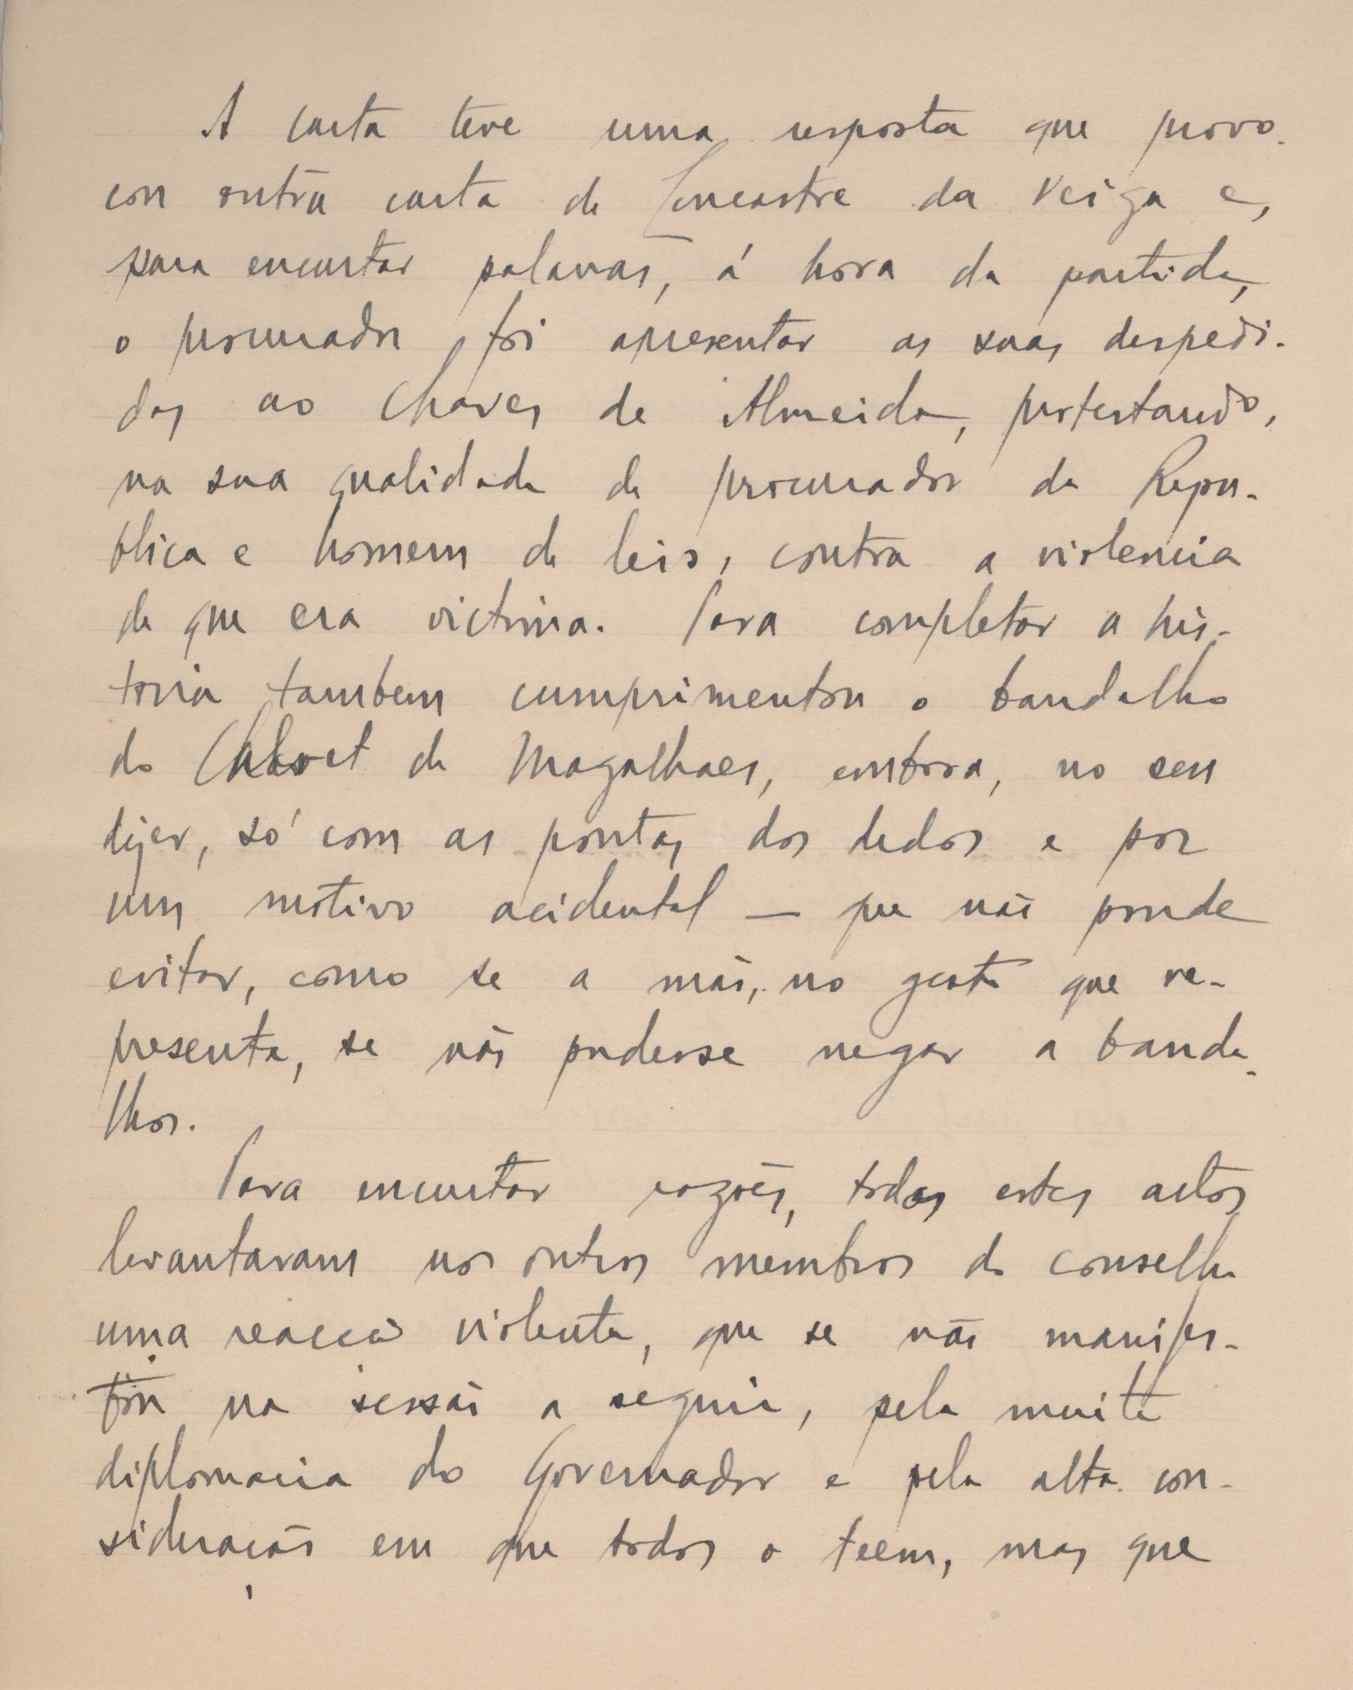 A carta teve uma resposta que provo-
cou outra carta de Lencastre da Veiga e,
para encurtar palavras, á hora da partida,
o procurador foi apresentar as suas despedi-
das ao Chaves de Almeida, protestando,
na sua qualidade de procurador da Repu-
blica e homem de leis, contra a violencia
de que era victima. Para completar a his-
toria tambem cumprimentou o bandalho
do Calvet de Magalhaes, embora, no seu
dizer, só com as pontas dos dedos e por
um motivo acidental — que não poude
evitar, como se a mão, no gesto que re-
presenta, se não pudesse negar a banda-
lhos.
Para encurtar razões, todos estes actos
levantaram nos outros membros do conselho
uma reacção violenta, que se não manifes-
tou na sessão a seguir, pela muita
diplomacia do Governador e pela alta con-
sideração em que todos o teem, mas que